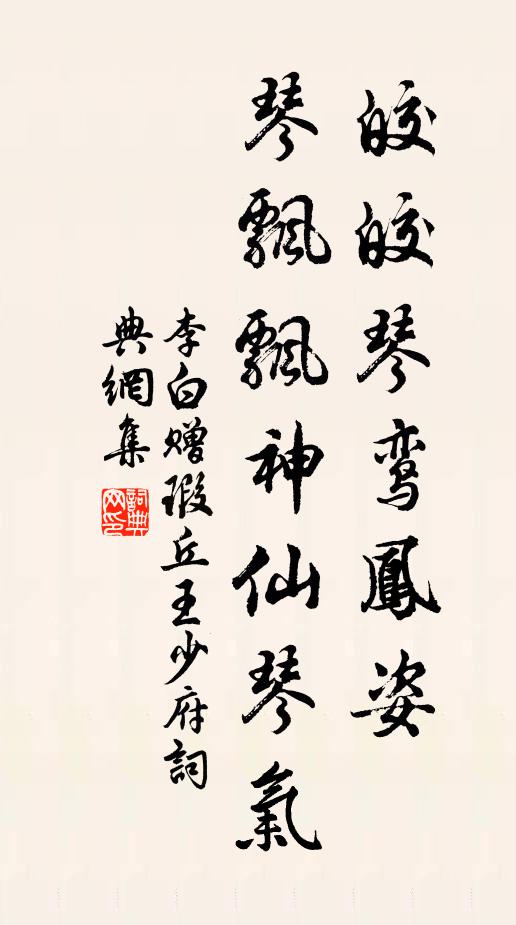 皎皎琴鸾鳳姿
琴飄飄神仙琴氣
李白赠瑕丘王少府詞
典網集
詞典網印